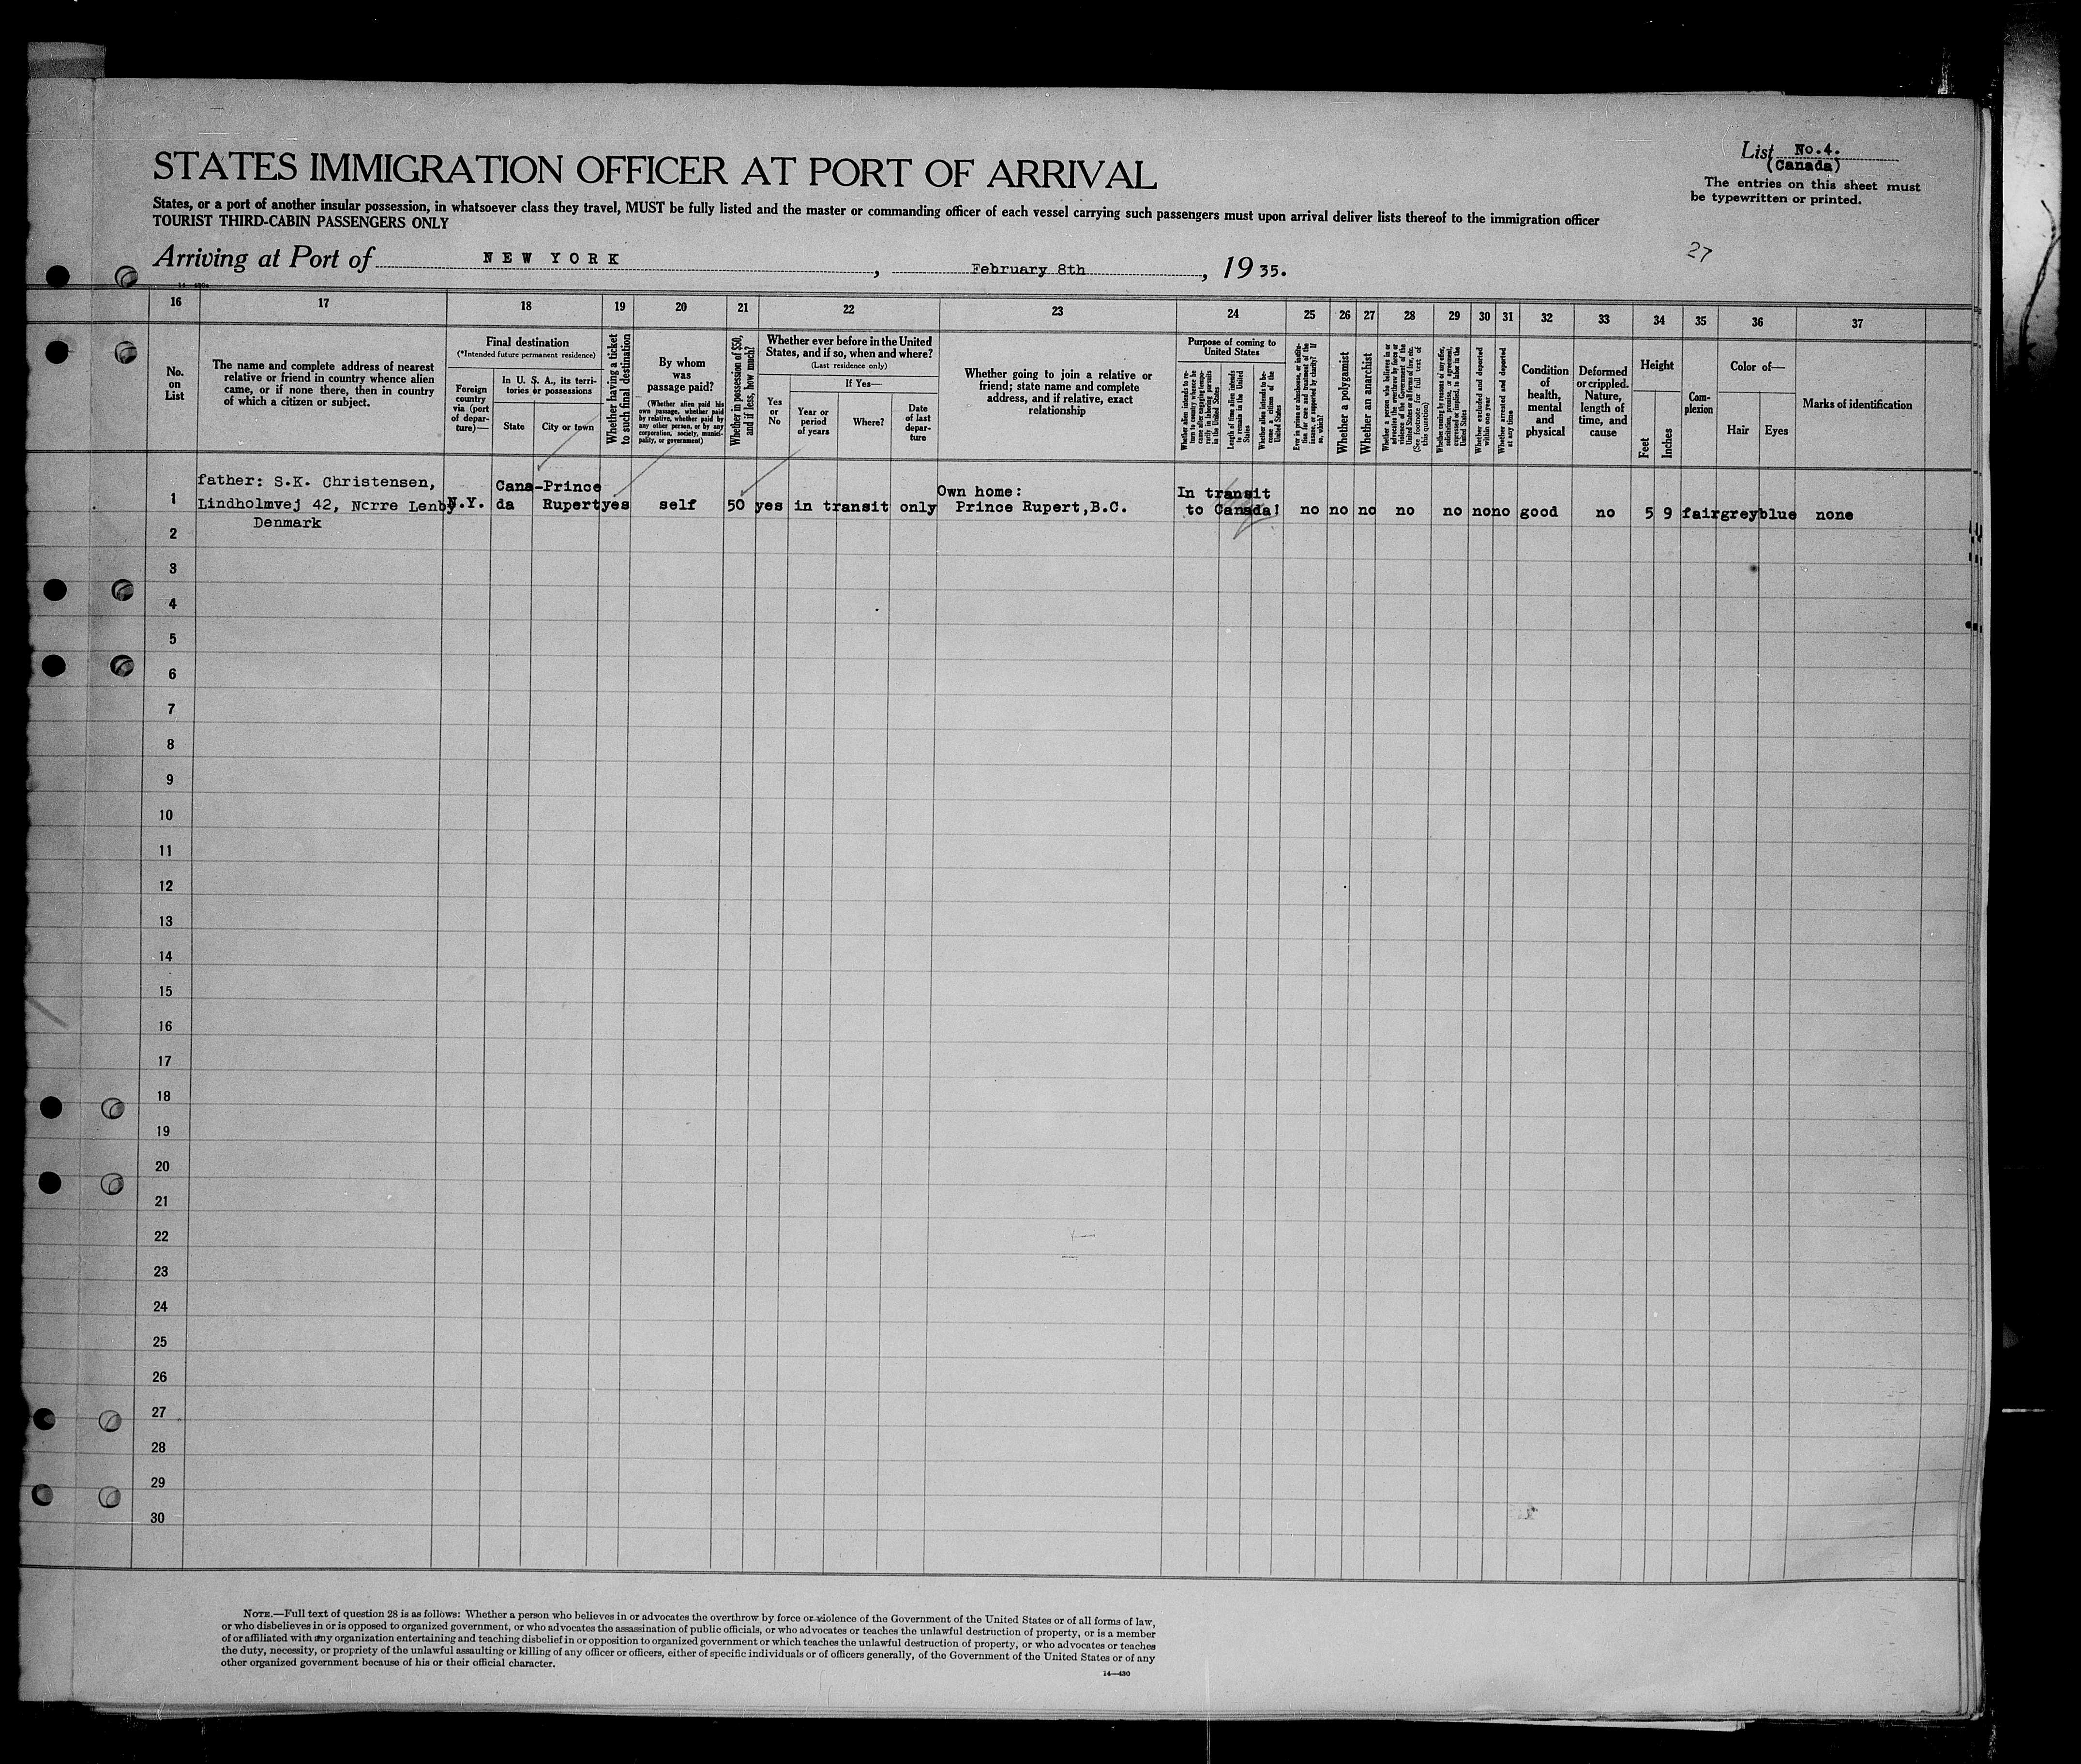 STATES IMMIGRATION OFFICER AT PORT OF ARRIVAL
List No.4.
(Canada)
The entries on this sheet must
be typewritten or printed.
States, or a port of another insular possession, in whatsoever class they travel, MUST be fully listed and the master or commanding officer of each vessel carrying such passengers must upon arrival deliver lists thereof to the immigration officer
TOURIST THIRD-CABIN PASSENGERS ONLY
27
Arriving at Port of NEW YORK, February 8th, 1935.
16 17 18 19 20 21 22 23 24 25 26 27 28 29 30 31 32 33 34 35 36 37
No.
on
List
The name and complete address of nearest
relative or friend in country whence alien
came, or if none there, then in country
of which a citizen or subject.
Final destination
(*Intended future permanent residence)
Foreign
country
via (port
of depar-
ture)—
In U. S. A., its terri-
tories or possessions
State
City or town
Whether having a ticket
to such final destination
By whom
was
passage paid?
(Whether alien paid his
own passage, whether paid
by relative, whether paid by
any other person, or by any
corporation, society, munici-
pality, or government)
Whether in possession of $50,
and if less, how much?
Whether ever before in the United
States, and if so, when and where?
(Last residence only)
Yes
or
No
If Yes—
Year or
period
of years
Where?
Date
of last
depar-
ture
Whether going to join a relative or
friend; state name and complete
address, and if relative, exact
relationship
Purpose of coming to
United States
Whether alien intends to re-
turn to country whence he
came after engaging tempo-
rarily in laboring pursuits
in the United States
Length of time alien intends
to remain in the United
States
Whether alien intends to be-
come a citizen of the
United States
Ever in prison or almshouse, or institu-
tion for care and treatment of the
insane, or supported by charity? If
so, which?
Whether a polygamist
Whether an anarchist
Whether a person who believes in or
advocates the overthrow by force or
violence of the Government of the
United States or all forms of law, etc.
(See footnote for full text of
this question)
Whether coming by reasons of any offer,
solicitation, promise, or agreement,
expressed or implied, to labor in the
United States
Whether excluded and deported
within one year
Whether arrested and deported
at any time
Condition
of
health,
mental
and
physical
Deformed
or crippled.
Nature,
length of
time, and
cause
Height
Feet
Inches
Com-
plexion
Color of—
Hair
Eyes
Marks of identification
father: S.K. Christensen,
Cana-Prince
Own home:
In transit
1 Lindholmvej 42, Norre Lenby N.Y. da Rupert yes self 50 yes in transit only Prince Rupert,B.C. to Canada! no no no no no no no good no 5 9 fair grey blue none
Denmark
2
3
4
5
6
7
8
9
10
11
12
13
14
15
16
17
18
19
20
21
22
23
24
25
26
27
28
29
30
NOTE.—Full text of question 28 is as follows: Whether a person who believes in or advocates the overthrow by force or violence of the Government of the United States or of all forms of law,
or who disbelieves in or is opposed to organized government, or who advocates the assassination of public officials, or who advocates or teaches the unlawful destruction of property, or is a member
of or affiliated with any organization entertaining and teaching disbelief in or opposition to organized government or which teaches the unlawful destruction of property, or who advocates or teaches
the duty, necessity, or propriety of the unlawful assaulting or killing of any officer or officers, either of specific individuals or of officers generally, of the Government of the United States or of any
other organized government because of his or their official character.
14—430